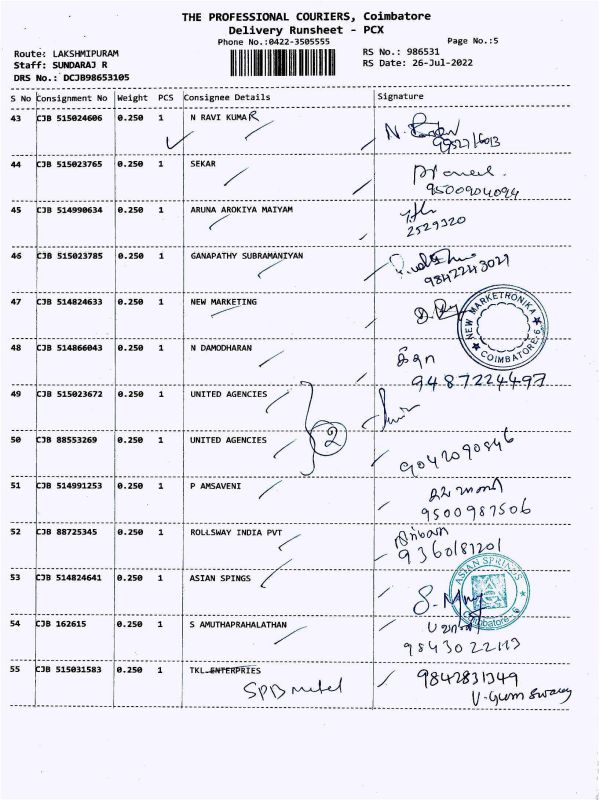 THE PROFESSIONAL COURIERS, Coimbatore
Delivery Runsheet - PCX
Phone No.:0422-3505555
Page No.:5
Route: LAKSHMIPURAM
RS No.: 986531
Staff: SUNDARAJ R
RS Date: 26-Jul-2022
DRS No.: DCJB98653105
S No Consignment No Weight PCS Consignee Details Signature
43 CJB 515024606 0.250 1 N RAVI KUMAR
44 CJB 515023765 0.250 1 SEKAR
9500904094
45 CJB 514990634 0.250 1 ARUNA AROKIYA MAIYAM
2529320
46 CJB 515023785 0.250 1 GANAPATHY SUBRAMANIYAN
9842243027
47 CJB 514824633 0.250 1 NEW MARKETING
NEW MARKETRONIKA
COIMBATORE-9
48 CJB 514866043 0.250 1 N DAMODHARAN
9487224497
49 CJB 515023672 0.250 1 UNITED AGENCIES
2
50 CJB 88553269 0.250 1 UNITED AGENCIES
9042090846
51 CJB 514991253 0.250 1 P AMSAVENI
9500987506
52 CJB 88725345 0.250 1 ROLLSWAY INDIA PVT
9360187201
53 CJB 514824641 0.250 1 ASIAN SPINGS
ASIAN SPRINGS
Coimbatore-6
54 CJB 162615 0.250 1 S AMUTHAPRAHALATHAN
9843022113
55 CJB 515031583 0.250 1 TKL ENTERPRIES
9842831349
SPB metel